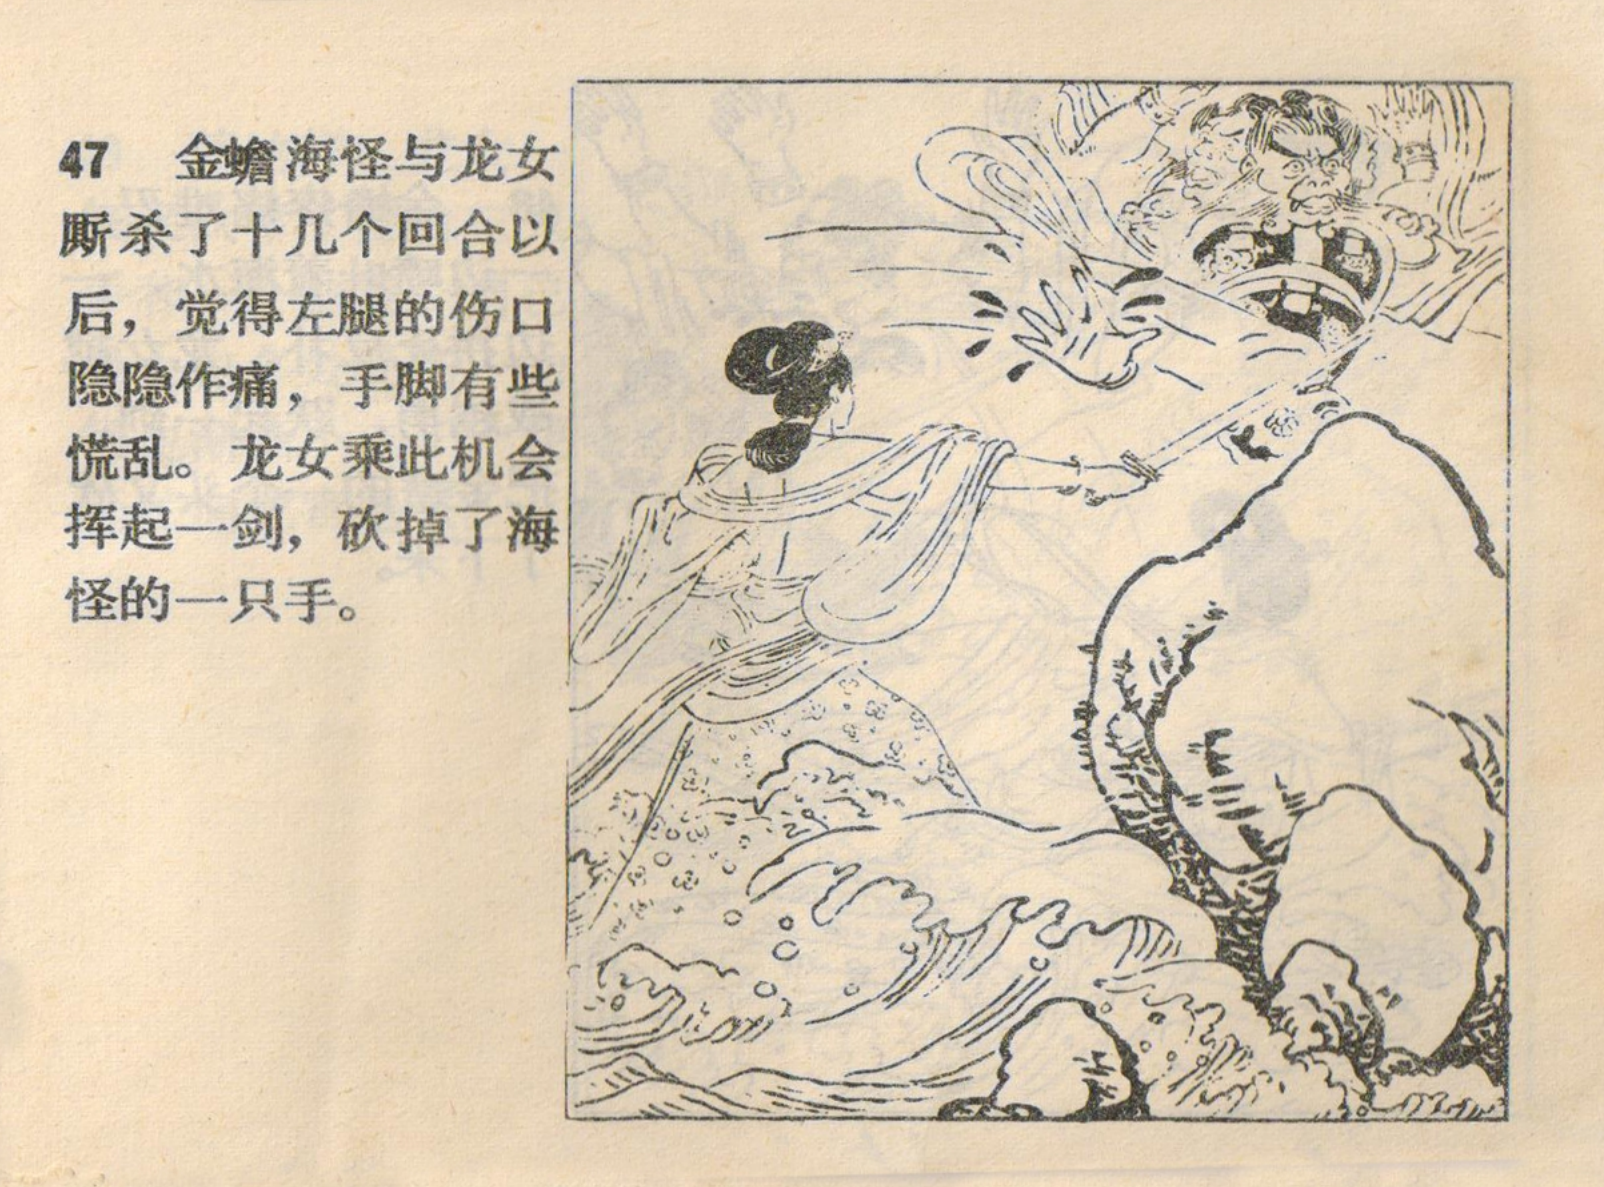 47 金蟾海怪与龙女
厮杀了十几个回合以
后，觉得左腿的伤口
隐隐作痛，手脚有些
慌乱。龙女乘此机会
挥起一剑，砍掉了海
怪的一只手。